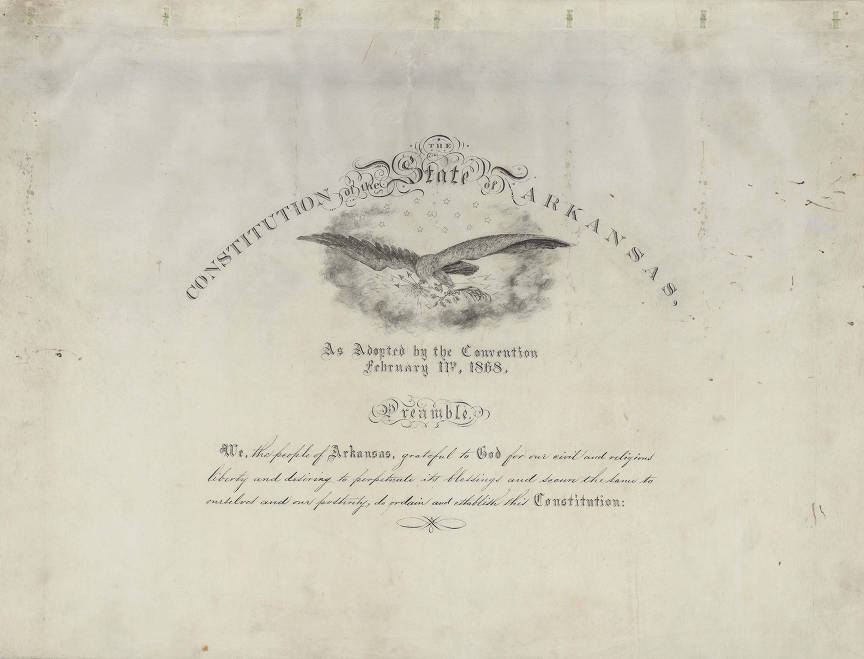 THE
CONSTITUTION of the State of ARKANSAS,
As Adopted by the Convention
February 11th, 1868.
Preamble.
We, the people of Arkansas, grateful to God for our civil and religious
liberty and desiring to perpetuate its blessings and secure the same to
ourselves and our posterity, do ordain and establish this Constitution: